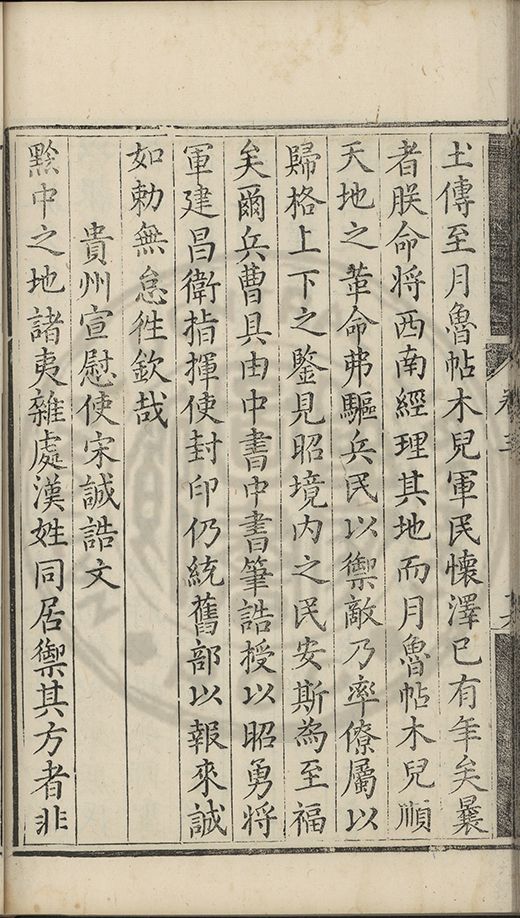 土傳至月魯帖木兒軍民懷澤已有年矣曩
者朕命將西南經理其地而月魯帖木兒順
天地之革命弗驅兵民以禦敵乃率僚屬以
歸格上下之鑒見昭境內之民安斯為至福
矣爾兵曹具由中書中書筆誥授以昭勇將
軍建昌衛指揮使封印仍統舊部以報來誠
如勅無怠徃欽哉
貴州宣慰使宋誠誥文
黔中之地諸夷雜處漢姓同居禦其方者非